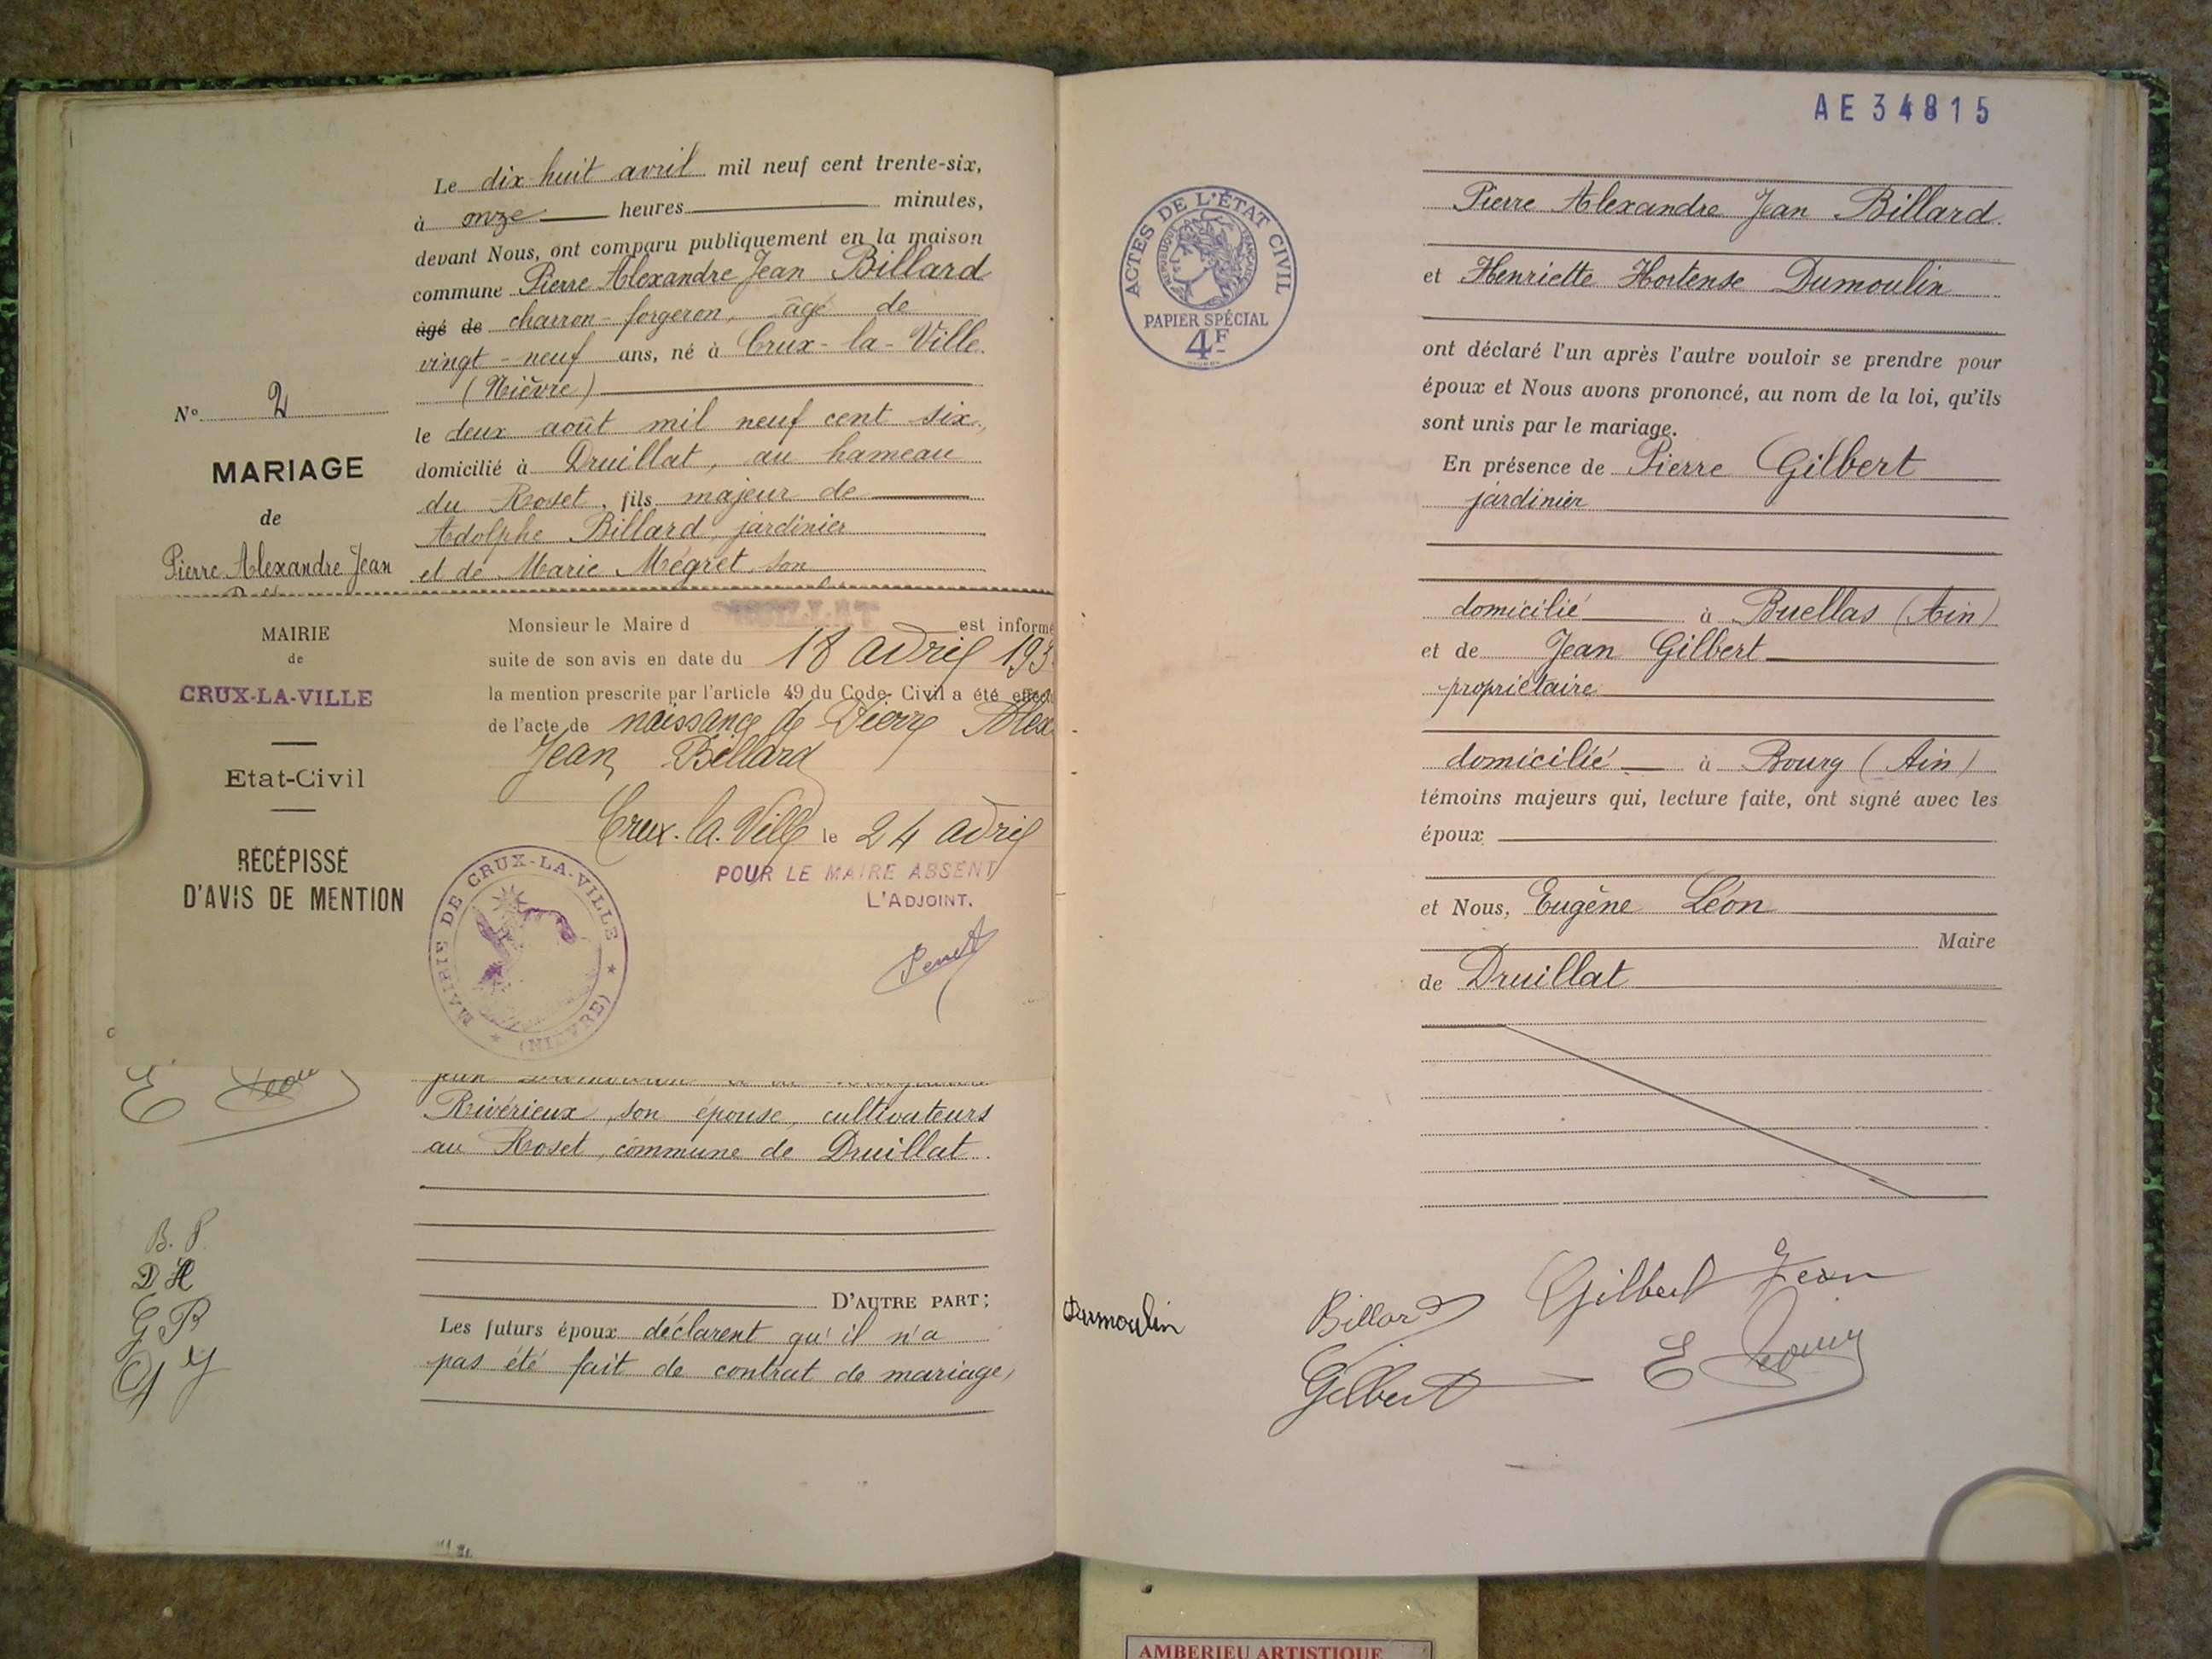 Le dix huit avril mil neuf cent trente-six,
à onze heures minutes,
devant Nous, ont comparu publiquement en la maison
commune Pierre Alexandre Jean Billard
âgé de charron-forgeron, âgé de
vingt-neuf ans, né à Crux-la-Ville
(Nièvre)
le deux août mil neuf cent six,
domicilié à Druillat, au hameau
du Roset, fils majeur de
Adolphe Billard, jardinier
et de Marie Mégret son
N° 2
MARIAGE
de
Pierre Alexandre Jean
MAIRIE
de
CRUX-LA-VILLE
Etat-Civil
RÉCÉPISSÉ
D'AVIS DE MENTION
Monsieur le Maire d est informé
suite de son avis en date du 18 avril 193
la mention prescrite par l'article 49 du Code Civil a été effect
de l'acte de naissance de Pierre Alex
Jean Billard
Crux-la-Ville le 24 avril
POUR LE MAIRE ABSENT
L'ADJOINT.
MAIRIE DE CRUX-LA-VILLE
(NIÈVRE)
Rivérieux, son épouse, cultivateurs
au Roset, commune de Druillat.
B. P
D H
G P
G J
D'AUTRE PART;
Les futurs époux déclarent qu'il n'a
pas été fait de contrat de mariage,
AE34815
ACTES DE L'ÉTAT CIVIL
RÉPUBLIQUE FRANÇAISE
PAPIER SPÉCIAL
4F
Pierre Alexandre Jean Billard
et Henriette Hortense Dumoulin
ont déclaré l'un après l'autre vouloir se prendre pour
époux et Nous avons prononcé, au nom de la loi, qu'ils
sont unis par le mariage.
En présence de Pierre Gilbert
jardinier
domicilié à Buellas (Ain)
et de Jean Gilbert
propriétaire
domicilié à Bourg (Ain)
témoins majeurs qui, lecture faite, ont signé avec les
époux
et Nous, Eugène Léon
Maire
de Druillat
Dumoulin Billard Gilbert Jean
Gilbert E Léon
AMBERIEU ARTISTIQUE